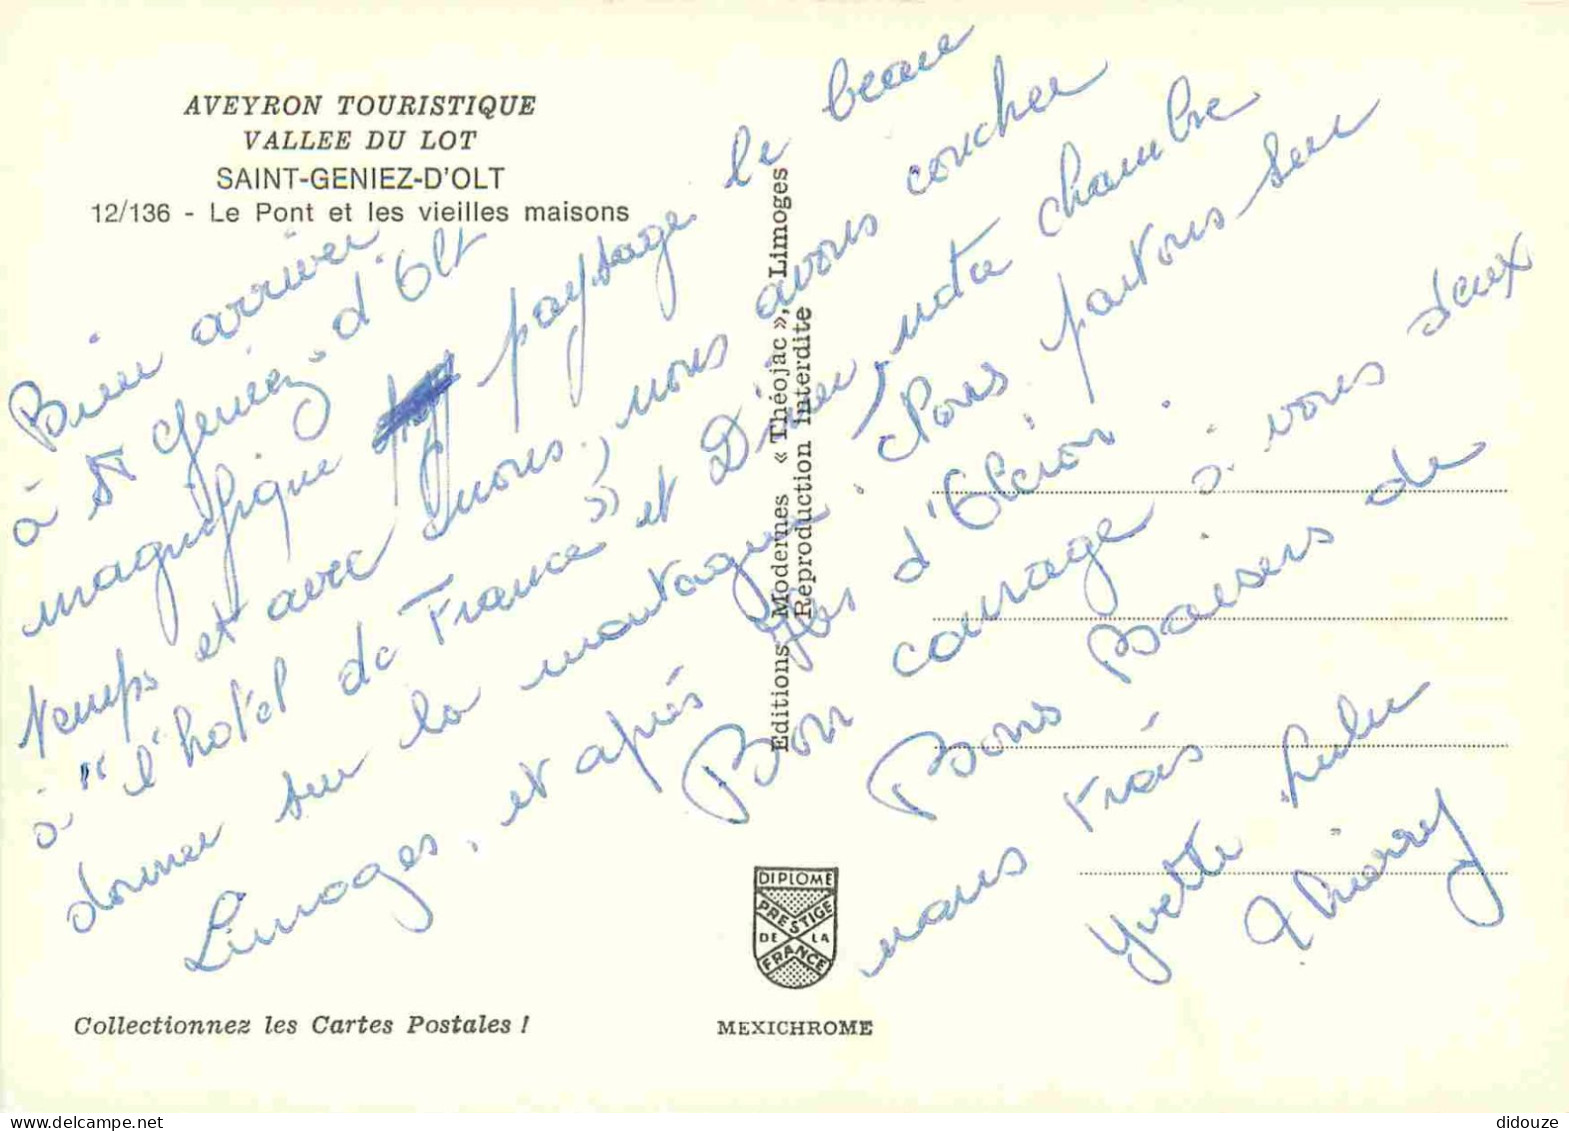 AVEYRON TOURISTIQUE
VALLEE DU LOT
SAINT-GENIEZ-D'OLT
12/136 - Le Pont et les vieilles maisons
Bien arriver
à St Géniez-d'Olt
magnifique paysage le beau
temps et avec nous, nous avons coucher
à "l'hotel de France" et Diner, notre chambre
donner sur la montagne. Nous partons sur
Limoges, et après Iles d'Oléron.
Bon courage à vous deux
Bons Baisers de
nous trois
Yvette Lulu
Thierry
Editions Modernes « Théojac », Limoges
Reproduction Interdite
DIPLOME
PRESTIGE
DE LA
FRANCE
Collectionnez les Cartes Postales !
MEXICHROME
didouze